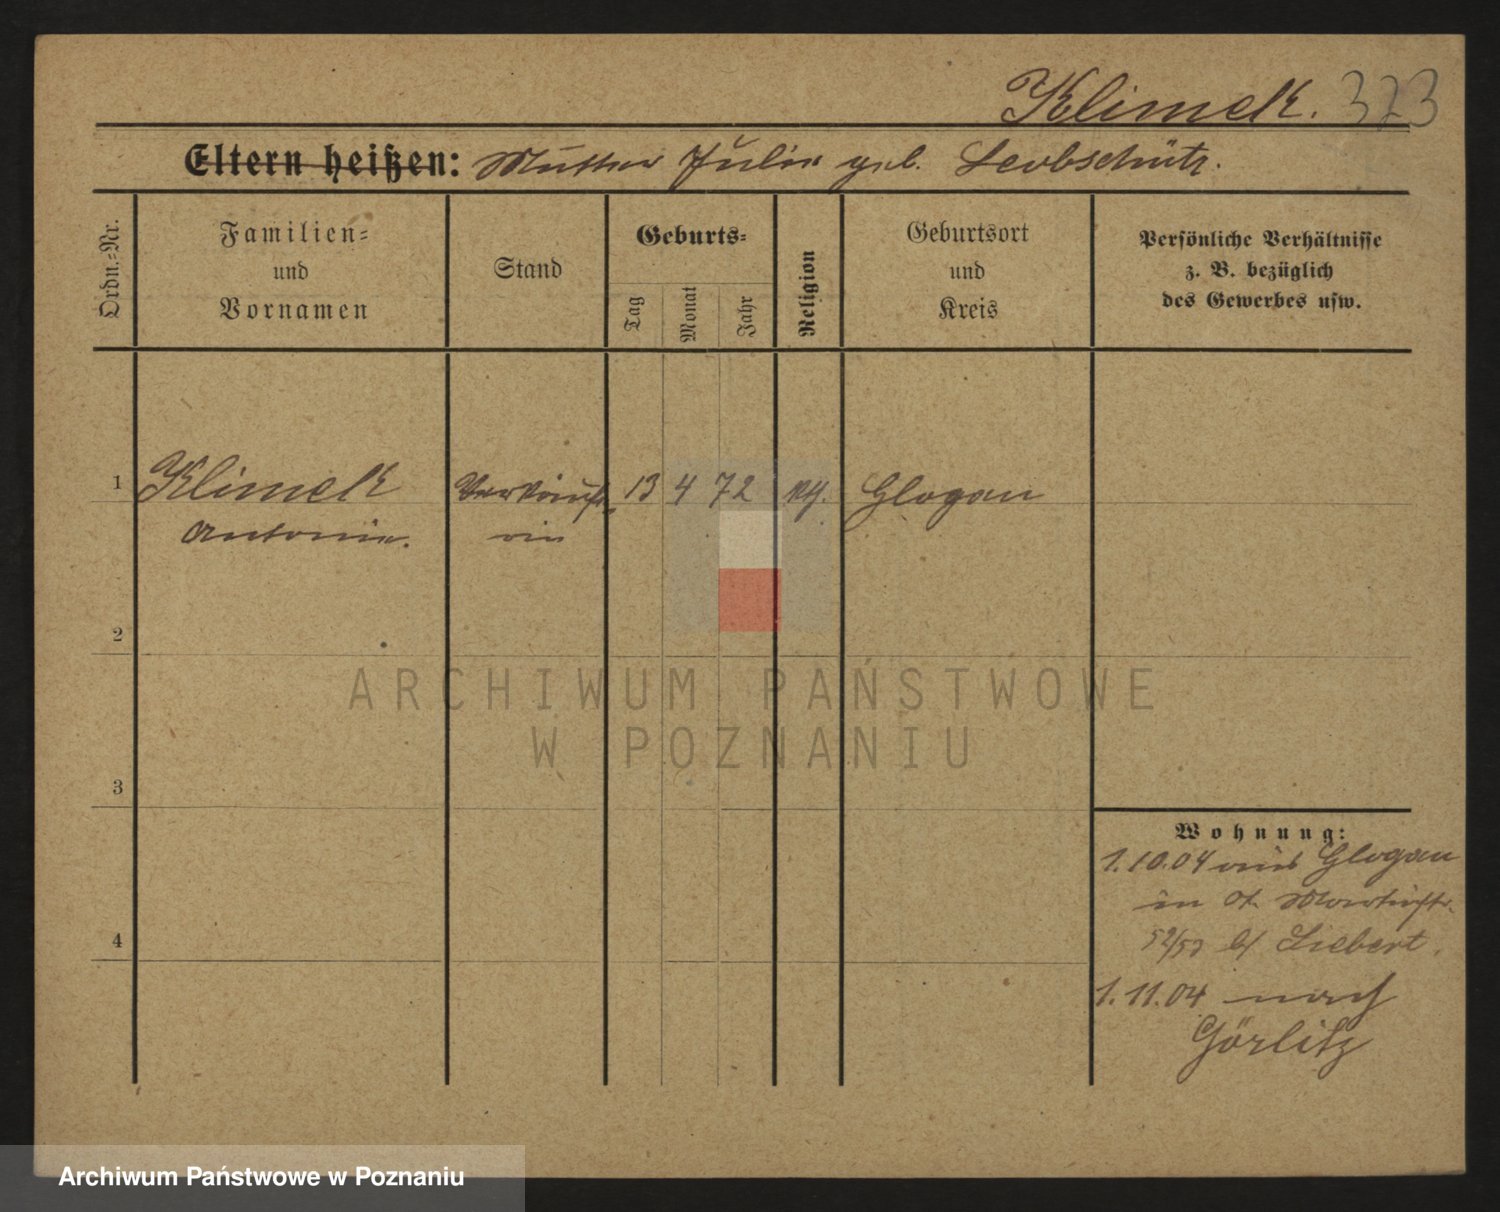 Klimek. 373
Eltern heißen: Mutter Julie geb. Leobschütz.
Ordn.-Nr.
Familien-
und
Vornamen
Stand
Geburts-
Tag
Monat
Jahr
Religion
Geburtsort
und
Kreis
Persönliche Verhältnisse
z. B. bezüglich
des Gewerbes usw.
1 Klimek Verkäufe- 13 4 72 Glogau
Antonie. rin
2
3
4
Wohnung:
1.10.04 aus Glogau
in
52/53 b/ Liebert.
1.11.04 nach
Görlitz
ARCHIWUM PAŃSTWOWE
W POZNANIU
Archiwum Państwowe w Poznaniu